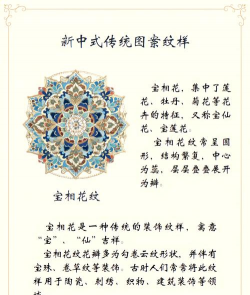 新中式传统图案纹样
宝相花，集中了莲
花、牡丹、菊花等花
卉的特征，又称宝仙
花、宝莲花。
宝相花纹常呈圆
形，结构繁复，中心
为花，层层叠叠展开
为瓣。
宝相花纹
宝相花是一种传统的装饰纹样，寓意
“宝”、“仙”吉祥。
宝相花纹花瓣多为勾卷云纹形状，并伴有
宝珠、卷草纹等装饰。古时人们常常将此纹
样用于陶瓷、刺绣、织物、建筑装饰等领